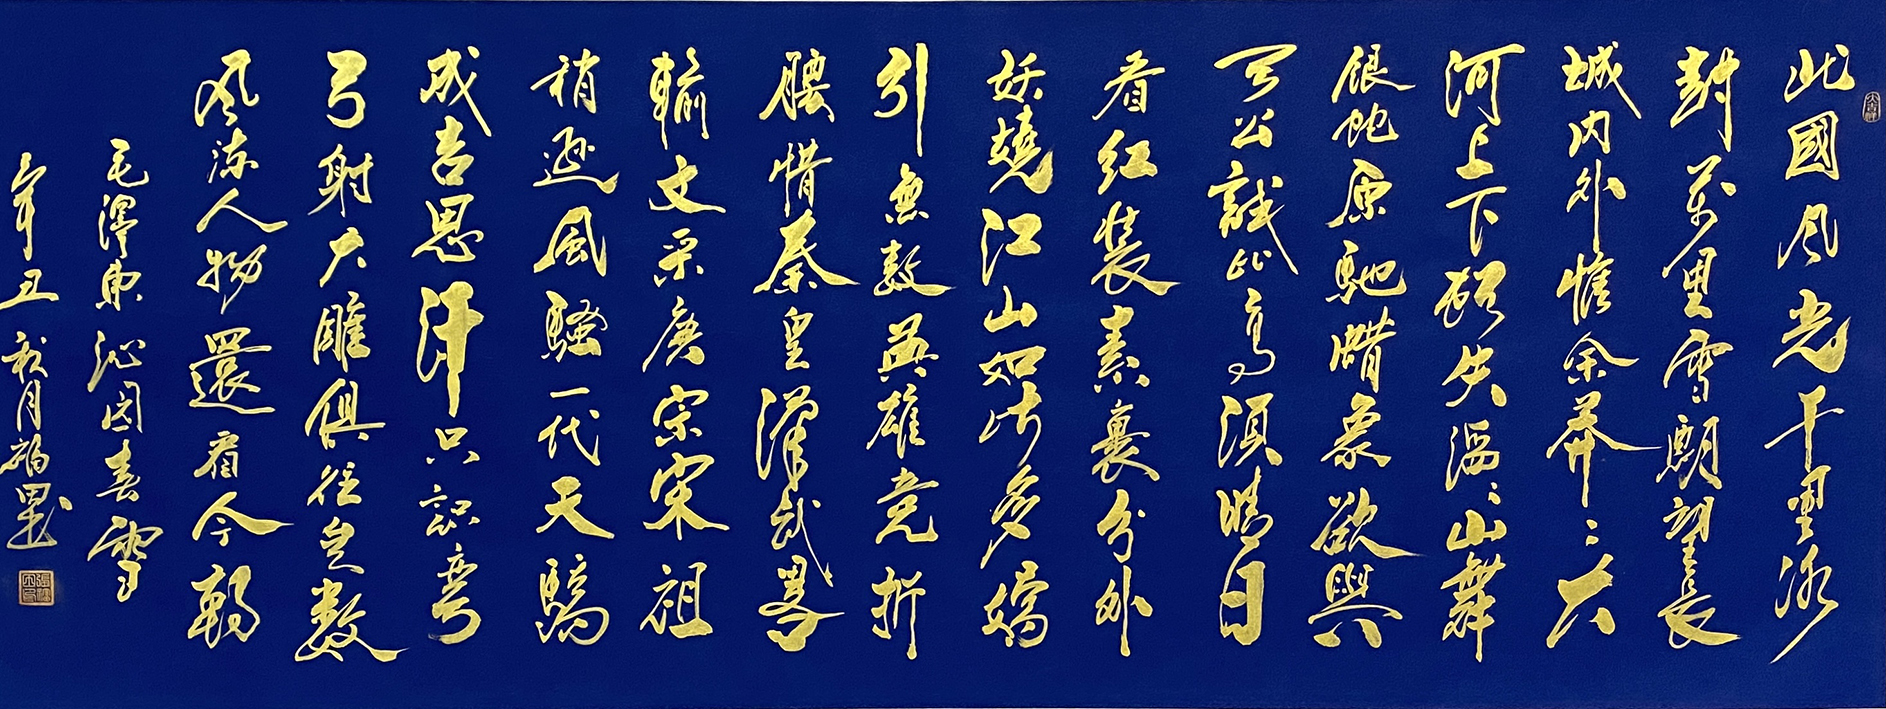 大吉祥
北國风光千里冰
封萬里雪飄望長
城内外惟余莽〻大
河上下頓失滔〻山舞
銀蛇原馳蜡象欲與
天公試比高須晴日
看红装素裹分外
妖嬈江山如此多嬌
引無數英雄竞折
腰惜秦皇漢武畧
輸文采唐宗宋祖
稍遜風騷一代天驕
成吉思汗只識彎
弓射大雕俱往矣数
风流人物還看今朝
毛澤東沁园春雪
辛丑秋月